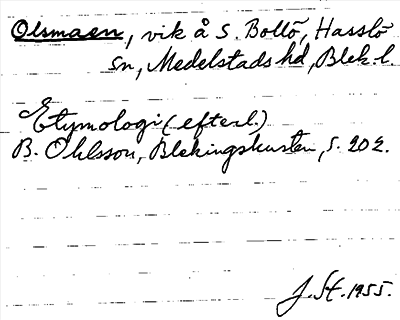 Olsmaen, vik å S. Bollö, Hasslö
sn, Medelstads hd, Blek. l.
Etymologi (efterl.)
B. Ohlsson, Blekingskusten, s. 202.
J. St. 1955.